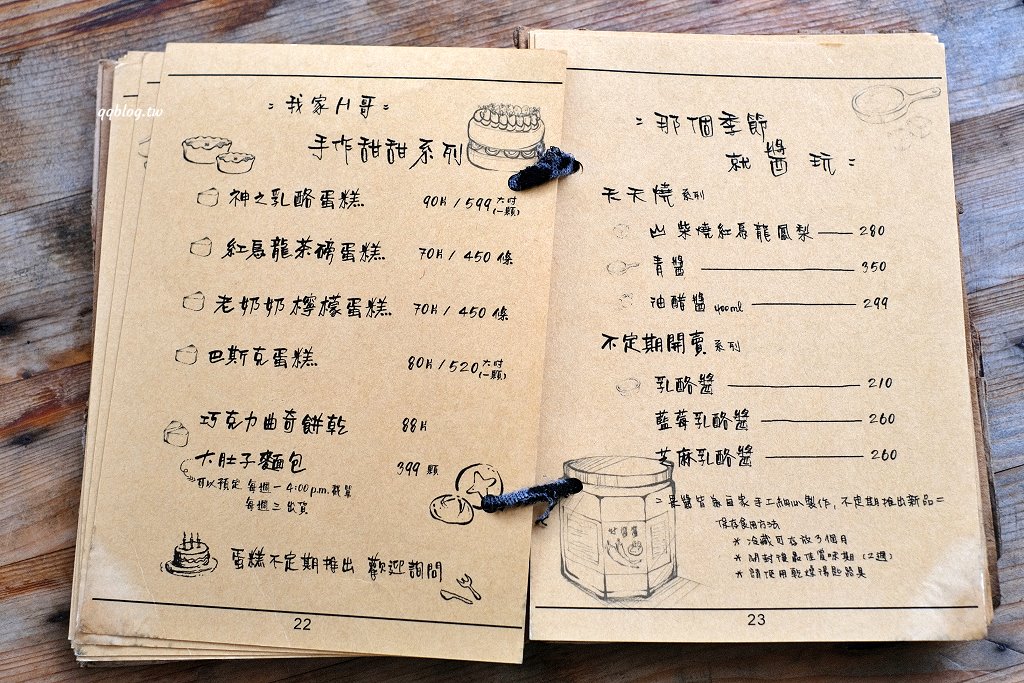 qqblog.tw
我家H哥
手作甜甜系列
神之乳酪蛋糕 90片/599 六吋(一顆)
紅烏龍茶磅蛋糕 70片/450條
老奶奶檸檬蛋糕 70片/450條
巴斯克蛋糕 80片/520 六吋(一顆)
巧克力曲奇餅乾 88片
大肚子麵包 399顆
可以預定 每週一4:00p.m.截單
每週三出貨
蛋糕不定期推出 歡迎詢問
22
那個季節
就醬玩
天天燒系列
山柴燒紅烏龍鳳梨 280
青醬 350
油醋醬 400ml 299
不定期開賣系列
乳酪醬 210
藍莓乳酪醬 260
芝麻乳酪醬 260
果醬皆為自家手工細心製作,不定期推出新品
保存食用方法
*冷藏可存放3個月
*開封後最佳賞味期(2週)
*請使用乾燥湯匙器具
23